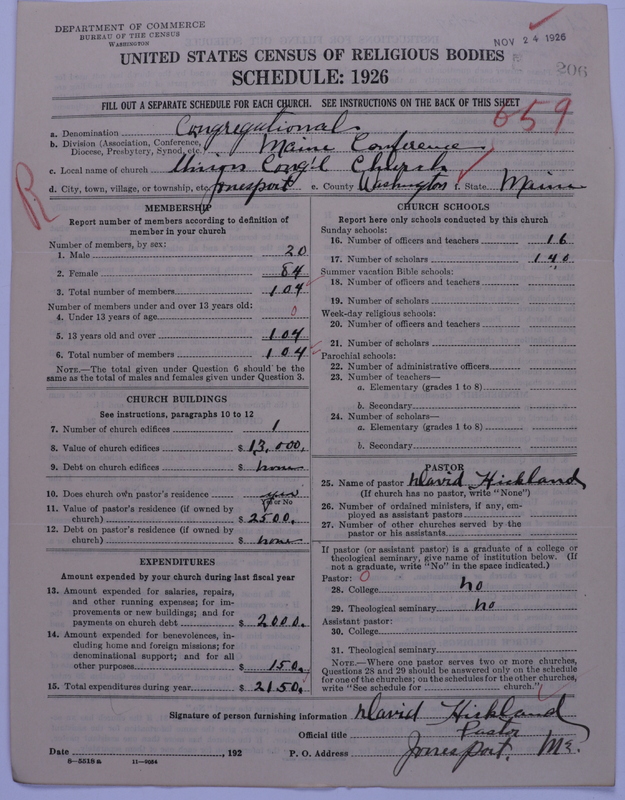 DEPARTMENT OF COMMERCE
BUREAU OF THE CENSUS
WASHINGTON
NOV 24 1926
UNITED STATES CENSUS OF RELIGIOUS BODIES
206
SCHEDULE: 1926
FILL OUT A SEPARATE SCHEDULE FOR EACH CHURCH. SEE INSTRUCTIONS ON THE BACK OF THIS SHEET
659
a. Denomination Congregational
b. Division (Association, Conference, Diocese, Presbytery, Synod, etc.) Maine Conference
c. Local name of church Union Cong'l Church
d. City, town, village, or township, etc. Jonesport e. County Washington f. State Maine
R
MEMBERSHIP
Report number of members according to definition of
member in your church
Number of members, by sex:
1. Male 20
2. Female 84
3. Total number of members 104
Number of members under and over 13 years old:
4. Under 13 years of age 0
5. 13 years old and over 104
6. Total number of members 104
NOTE.—The total given under Question 6 should be the
same as the total of males and females given under Question 3.
CHURCH BUILDINGS
See instructions, paragraphs 10 to 12
7. Number of church edifices 1
8. Value of church edifices $ 13,000.
9. Debt on church edifices $ none
10. Does church own pastor's residence yes
Yes or No
11. Value of pastor's residence (if owned by
church) $ 2500.
12. Debt on pastor's residence (if owned by
church) $ none
EXPENDITURES
Amount expended by your church during last fiscal year
13. Amount expended for salaries, repairs,
and other running expenses; for im-
provements or new buildings; and for
payments on church debt $ 2000.
14. Amount expended for benevolences, in-
cluding home and foreign missions; for
denominational support; and for all
other purposes $ 150.
15. Total expenditures during year $ 2150.
CHURCH SCHOOLS
Report here only schools conducted by this church
Sunday schools:
16. Number of officers and teachers 16
17. Number of scholars 140
Summer vacation Bible schools:
18. Number of officers and teachers
19. Number of scholars
Week-day religious schools:
20. Number of officers and teachers
21. Number of scholars
Parochial schools:
22. Number of administrative officers
23. Number of teachers—
a. Elementary (grades 1 to 8)
b. Secondary
24. Number of scholars—
a. Elementary (grades 1 to 8)
b. Secondary
PASTOR
25. Name of pastor David Hickland
(If church has no pastor, write "None")
26. Number of ordained ministers, if any, em-
ployed as assistant pastors
27. Number of other churches served by the
pastor or his assistants
If pastor (or assistant pastor) is a graduate of a college or
theological seminary, give name of institution below. (If
not a graduate, write "No" in the space indicated.)
Pastor: 0
28. College no
29. Theological seminary no
Assistant pastor:
30. College
31. Theological seminary
NOTE.—Where one pastor serves two or more churches,
Questions 28 and 29 should be answered only on the schedule
for one of the churches; on the schedules for the other churches,
write "See schedule for church."
Signature of person furnishing information David Hickland
Official title Pastor
Date , 192 P. O. Address Jonesport. Me.
8—5518 a 11—9064